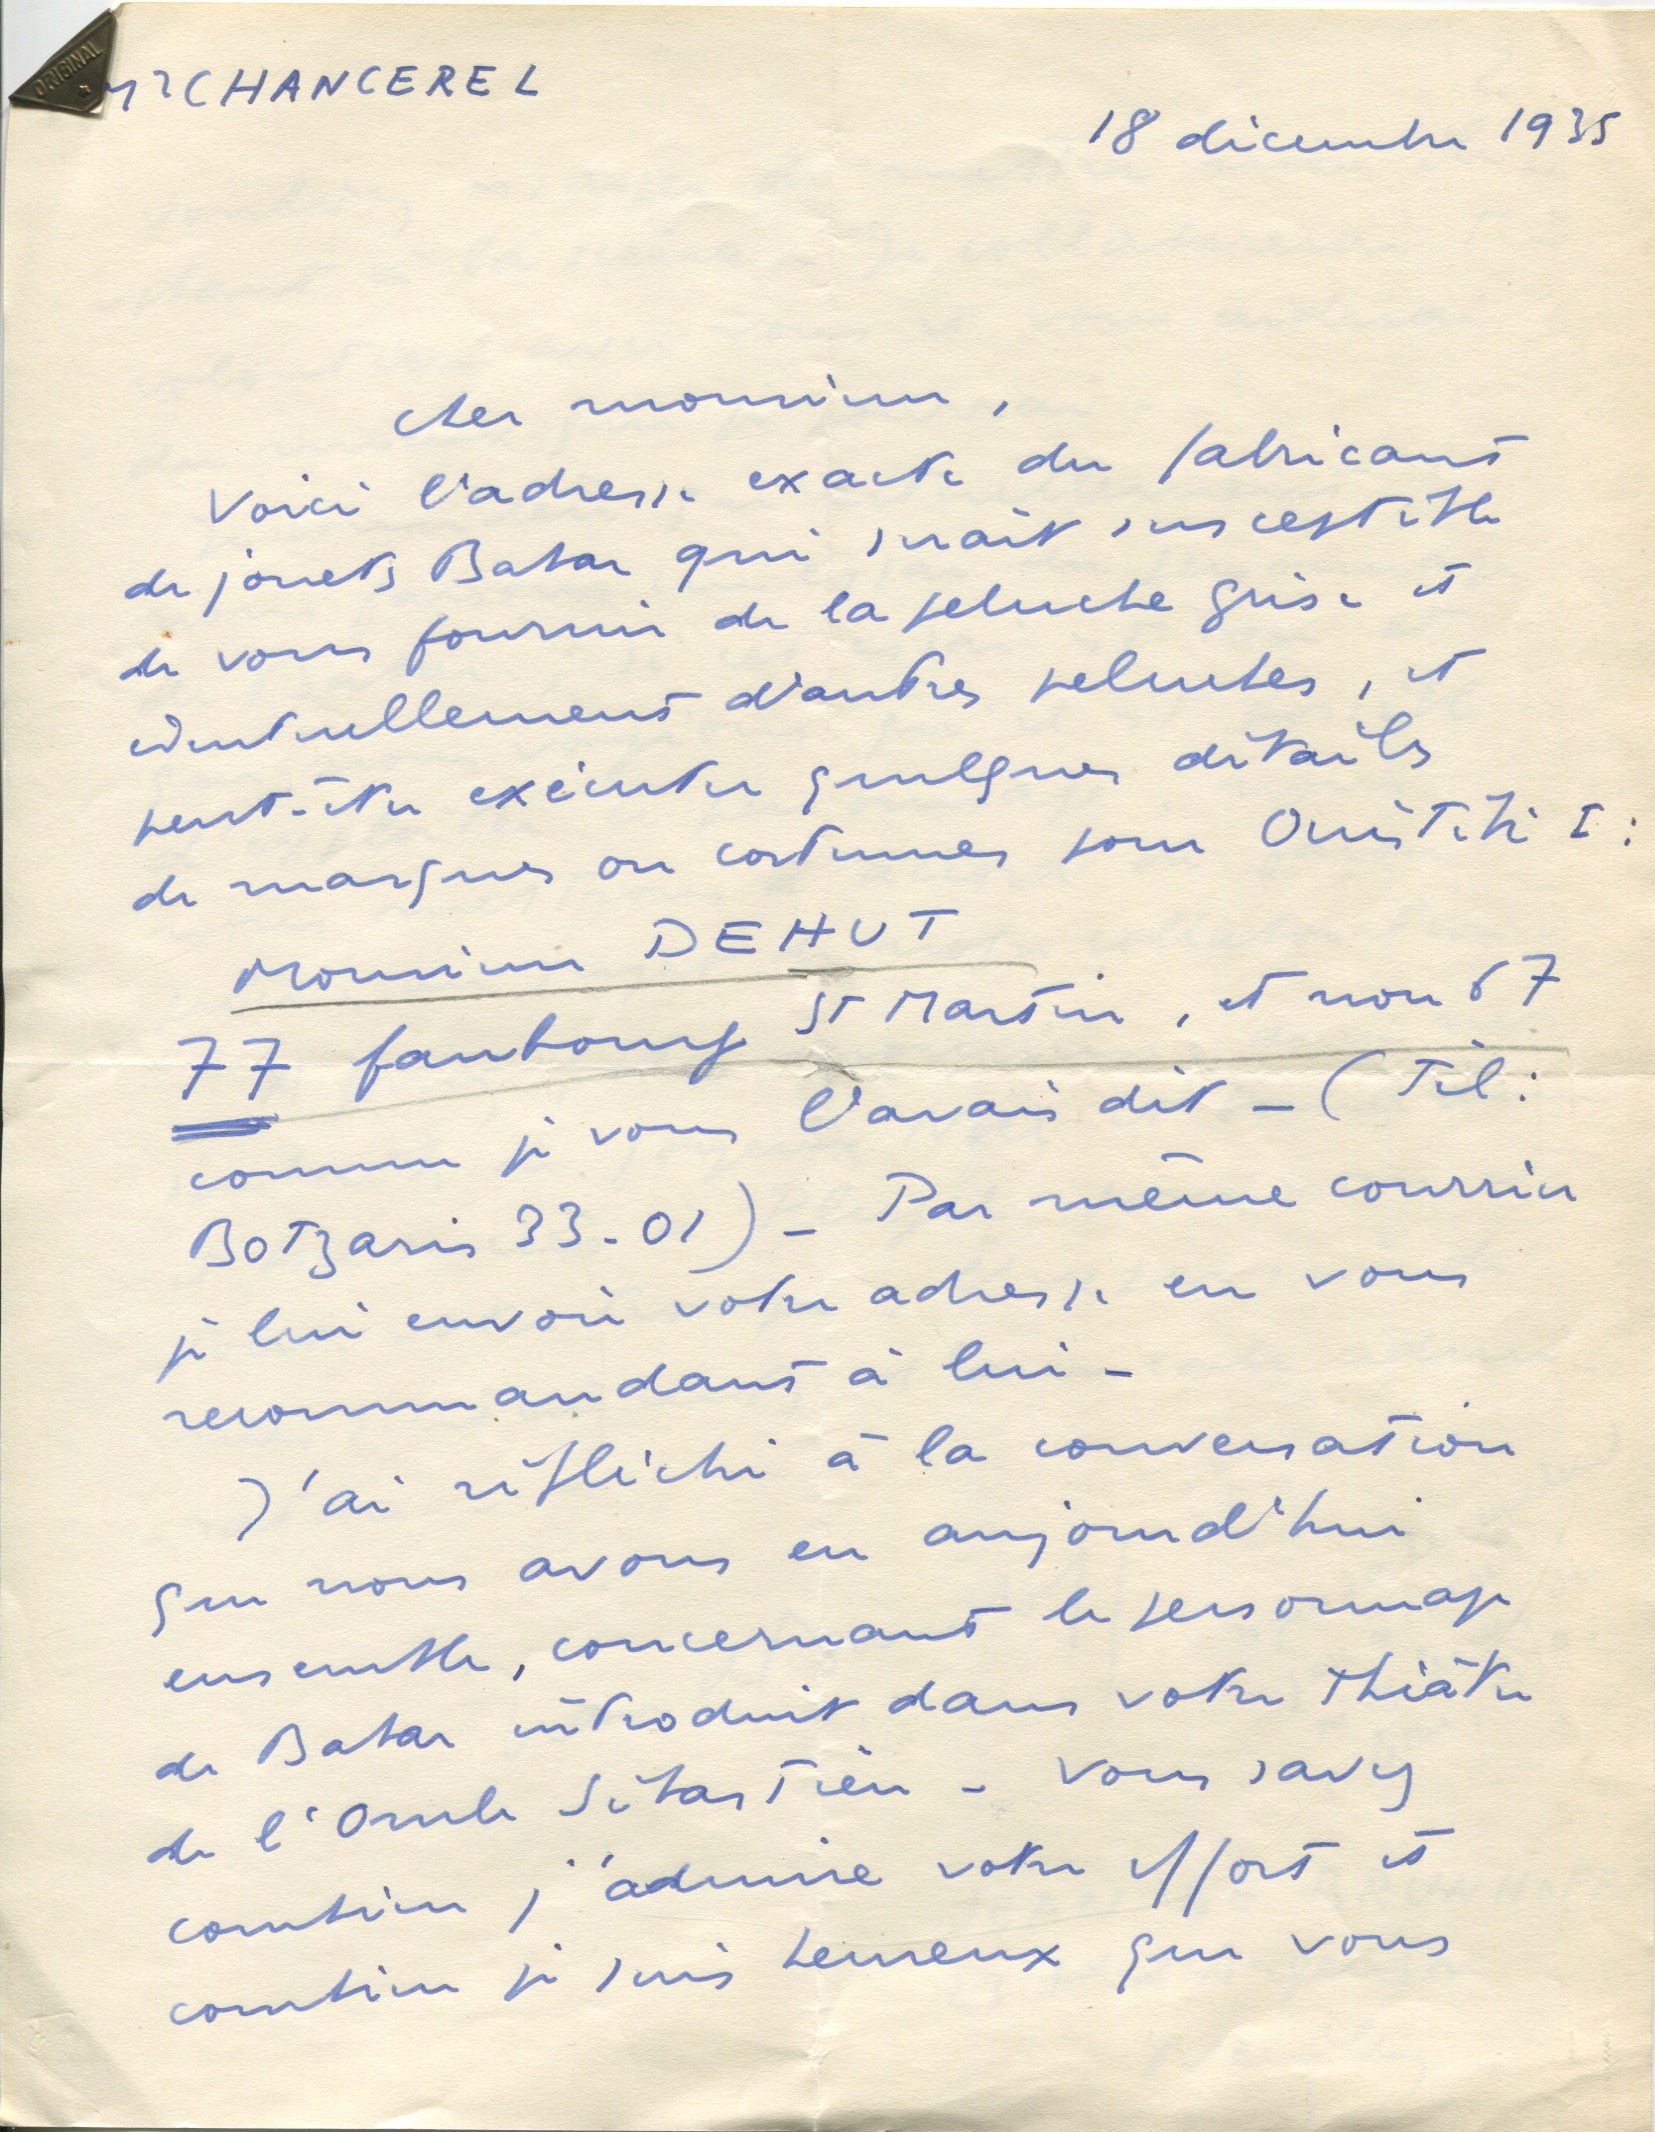 ORIGINAL
Mr CHANCEREL
18 décembre 1935
cher monsieur,
Voici l'adresse exacte du fabricant
de jouets Babar qui serait susceptible
de vous fournir de la peluche grise et
éventuellement d'autres peluches, et
peut-être exécuter quelques détails
de masques ou costumes pour Ouistiti I :
Monsieur DEHUT
77 faubourg St Martin, et non 67
comme je vous l'avais dit – (Tél :
Botzaris 33-01) – Par même courrier
je lui envoie votre adresse en vous
recommandant à lui –
J'ai réfléchi à la conversation
que nous avons eu aujourd'hui
ensemble, concernant le personnage
de Babar introduit dans votre théâtre
de l'Oncle Sébastien – Vous savez
combien j'admire votre effort et
combien je suis heureux que vous